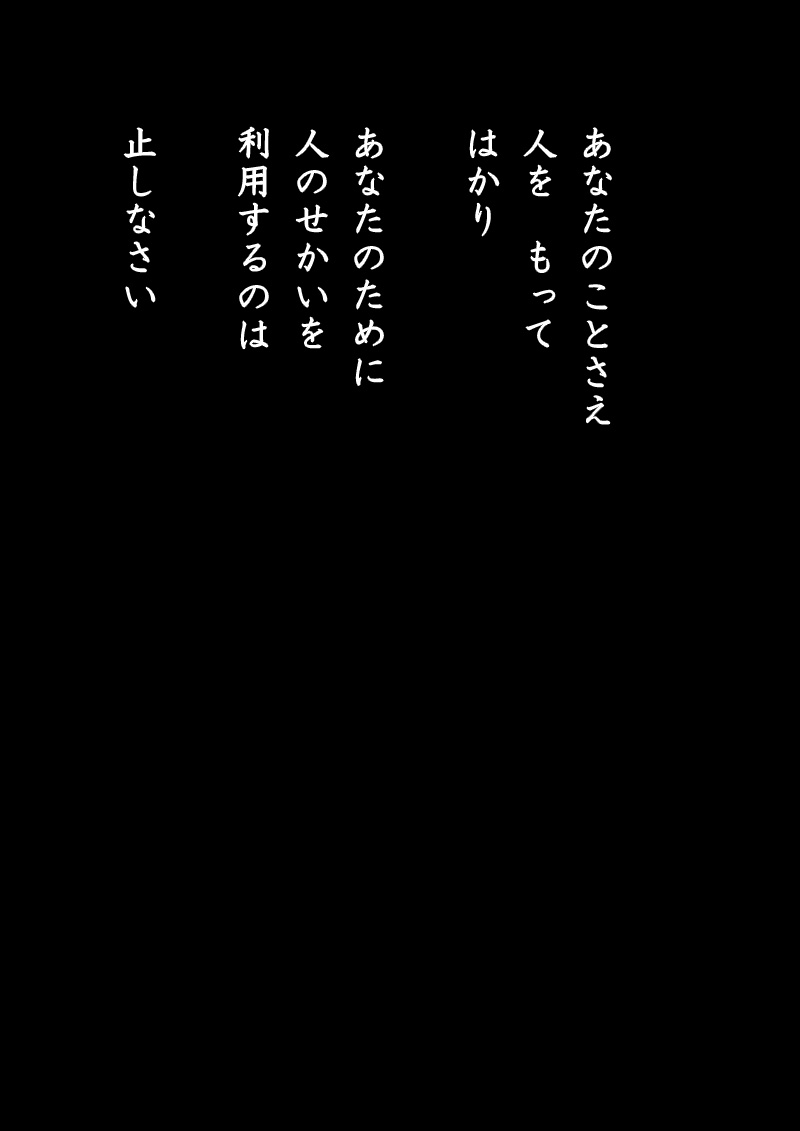 あなたのことさえ
人を　もって
はかり
あなたのために
人のせかいを
利用するのは
止しなさい